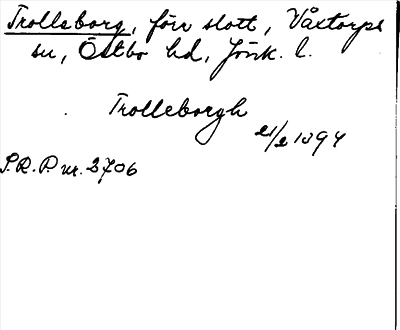 Trolleborg, förr slott, Våxtorps
sn, Östbo hd, Jönk. l.
Trolleborgh
21/2 1394
S.R.P. nr. 2706